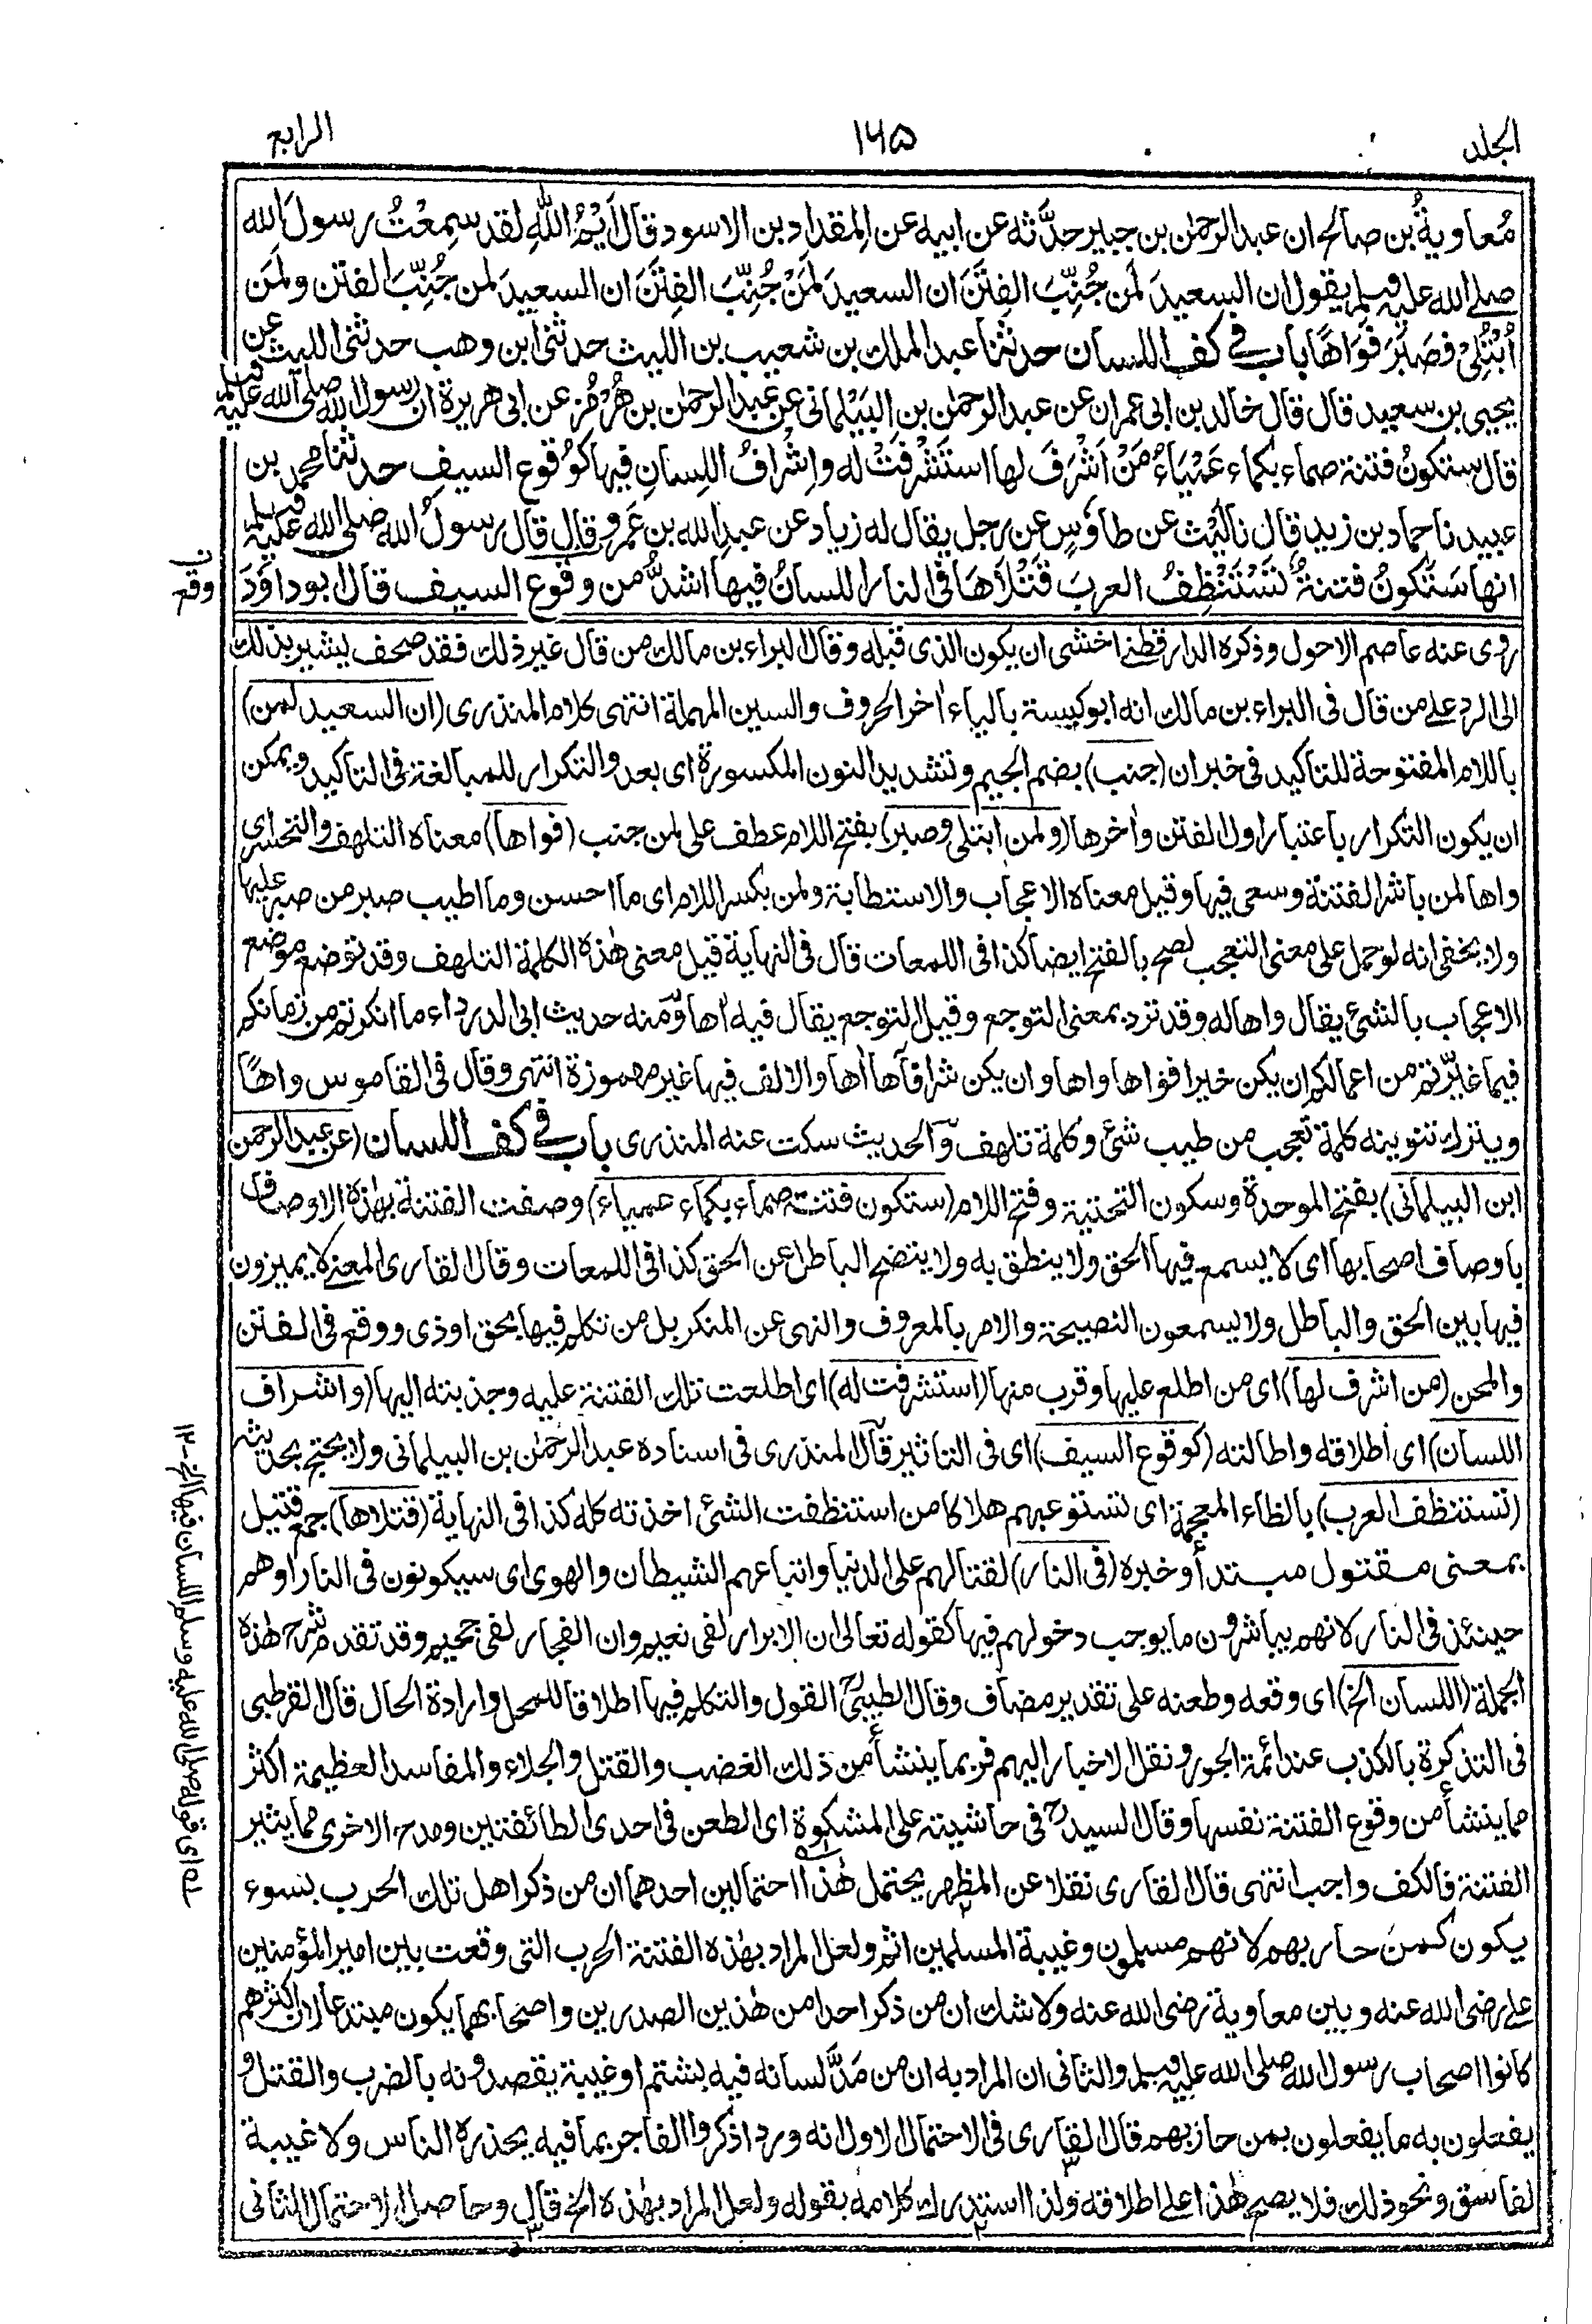 الجلد ١٦٥ الرابع
مُعاويةُ بن صالح ان عبد الرحمٰن بن جبير حدَّثه عن ابيه عن المقداد بن الاسود قال اَيْمُ اللهِ لقد سمِعْتُ رسولَ الله
صلے الله عليه وسلم يقول ان السعيدَ لَمن جُنِّبَ الفِتَنَ ان السعيدَ لمَنْ جُنِّبَ الفِتَنَ ان السعيدَ لمن جُنِّبَ الفتن ولَمَن
اُبْتُلِىْ فصَبَرَ فَوَاهًا باب فے كف اللسان حدثنا عبد الملك بن شعيب بن الليث حدثنى ابن وهب حدثنى الليث عن
يحيى بن سعيد قال قال خالد بن ابى عمران عن عبد الرحمٰن بن البَيْلمانى عن عبد الرحمٰن بن هُرْمُز عن ابى هريرة ان رسول الله صلى الله عليه وسلم
قال ستكونُ فتنة صماء بكماء عَمْيَاءُ مَنْ اَشْرَفَ لها استَشْرفَتْ له واِشْرافُ اللِسانِ فيها كوُقوع السيفِ حدثنا محمد بن
عبيد نا حماد بن زيد قال نا ليْث عن طاؤسٍ عن رجل يقال له زياد عن عبدِ الله بن عَمرو قال قال رسولُ الله صلى الله عليه وسلم
انها سَتَكونُ فتنةٌ تَسْتَنْظِفُ العربَ قَتْلَاهَا فى النار اللسانُ فيها اشدُّ من وقوع السيف قال ابو داؤدَ
وقع
روى عنه عاصم الاحول وذكره الدارقطنے اخشى ان يكون الذى قبله وقال البراء بن مالك من قال غير ذلك فقد صحف يشير بذلك
الى الرد على من قال فى البراء بن مالك انه ابو كبيسة بالياء اٰخر الحروف والسين المهملة انتهى كلام المنذرى (ان السعيد لمن)
باللام المفتوحة للتاكيد فى خبر ان (جنب) بضم الجيم وتشديد النون المكسورة اى بعد والتكرار للمبالغة فى التاكيد ويمكن
ان يكون التكرار باعتبار اول الفتن واٰخرها (ولمن ابتلى وصبر) بفتح اللام عطف على لمن جنب (فواها) معناه التلهف والتحسر اى
واها لمن باشر الفتنة وسعى فيها وقيل معناه الاعجاب والاستطابة ولمن بكسر اللام اى ما احسن وما اطيب صبر من صبر عليها
ولا يخفى انه لو حمل على معنى التعجب لصح بالفتح ايضا كذا فى اللمعات قال فى النهاية قيل معنى هٰذه الكلمة التلهف وقد توضع موضع
الاعجاب بالشئ يقال واها له وقد ترد بمعنى التوجع وقيل التوجع يقال فيه اٰها ومنه حديث ابى الدرداء ما انكرتم من زمانكم
فيما غيّرتم من اعمالكم ان يكن خيرا فواها واها وان يكن شرا فاٰها اٰها والالف فيها غير مهموزة انتهى وقال فى القاموس واهًا
ويترك تنوينه كلمة تعجب من طيب شئ وكلمة تلهف والحديث سكت عنه المنذرى باب فے كف اللسان (عن عبد الرحمن
ابن البيلمانى) بفتح الموحدة وسكون التحتية وفتح اللام (ستكون فتنة صماء بكماء عمياء) وصفت الفتنة بهٰذه الاوصاف
باوصاف اصحابها اى لا يسمع فيها الحق ولا ينطق به ولا يتضح الباطل عن الحق كذا فى اللمعات وقال القارى المعنے لا يميزون
فيها بين الحق والباطل ولا يسمعون النصيحة والامر بالمعروف والنهى عن المنكر بل من تكلم فيها بحق اوذى ووقع فى الفتن
والمحن (من اشرف لها) اى من اطلع عليها وقرب منها (استشرفت له) اى اطلعت تلك الفتنة عليه وجذبته اليها (واشراف
اللسان) اى اطلاقه واطالته (كوقوع السيف) اى فى التاثير قال المنذرى فى اسناده عبد الرحمٰن بن البيلمانى ولا يحتج بحديثه
(تستنظف العرب) بالظاء المعجمة اى تستوعبهم هلاكا من استنظفت الشئ اخذته كله كذا فى النهاية (قتلاها) جمع قتيل
بمعنى مقتول مبتدأ وخبره (فى النار) لقتالهم على الدنيا واتباعهم الشيطان والهوى اى سيكونون فى النار او هم
حينئذ فى النار لانهم يباشرون ما يوجب دخولهم فيها كقوله تعالى ان الابرار لفى نعيم وان الفجار لفى جحيم وقد تقدم شرح هٰذه
الجملة (اللسان الخ) اى وقعه وطعنه على تقدير مضاف وقال الطيبىؒ القول والتكلم فيها اطلاقا للمحل وارادة الحال قال القرطبى
فى التذكرة بالكذب عند ائمة الجور ونقل الاخبار اليهم فربما ينشأ من ذلك الغضب والقتل والجلاء والمفاسد العظيمة اكثر
مما ينشأ من وقوع الفتنة نفسها وقال السيدؒ فى حاشيته على المشكوة اى الطعن فى احدى الطائفتين ومدح الاخرى مما يثير
الفتنة فالكف واجب انتهى قال القارى نقلا عن المظهر يحتمل هٰذا احتمالين احدهما ان من ذكر اهل تلك الحرب بسوء
يكون كمن حاربهم لانهم مسلمون وغيبة المسلمين اثم ولعل المراد بهٰذه الفتنة الحرب التى وقعت بين امير المؤمنين
على رضى الله عنه وبين معاوية رضى الله عنه ولا شك ان من ذكر احدا من هٰذين الصدرين واصحابهما يكون مبتدعا لان اكثرهم
كانوا اصحاب رسول الله صلى الله عليه وسلم والثانى ان المراد به ان من مَدَّ لسانه فيه بشتم او غيبة يقصدونه بالضرب والقتل و
يفعلون به ما يفعلون بمن حاربهم قال القارى فى الاحتمال الاول انه ورد اذكروا الفاجر بما فيه يحذره الناس ولا غيبة
لفاسق ونحو ذلك فلا يصح هٰذا على اطلاقه ولذا استدرك كلامه بقوله ولعل المراد بهٰذه الخ قال وحاصل الاحتمال الثانى
له اى قوله صلى الله عليه وسلم اللسان فيها الخ - ١٢